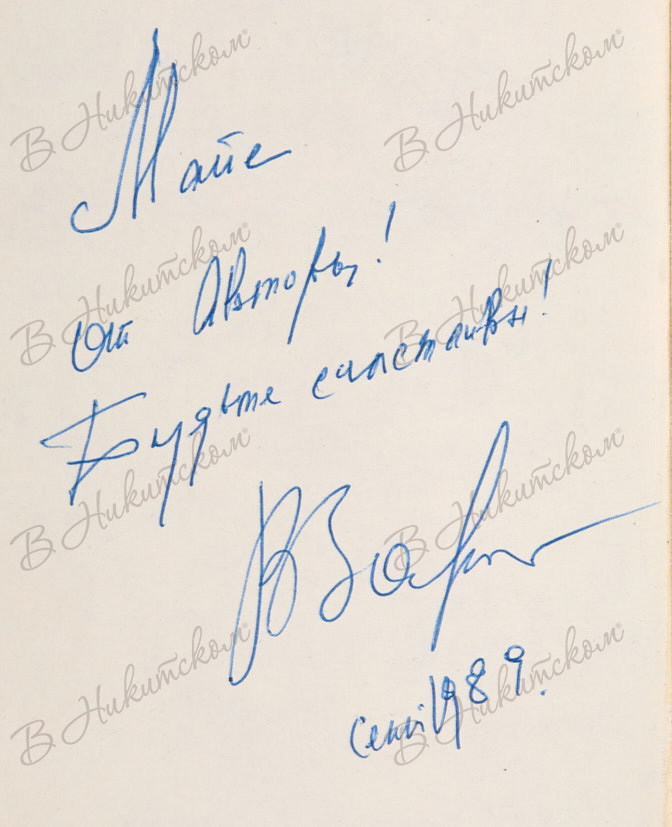 Майе
от Авторы!
Будьте счастливы!
сент 1989.
В Никитском
В Никитском
В Никитском
В Никитском
В Никитском
В Никитском
В Никитском
В Никитском